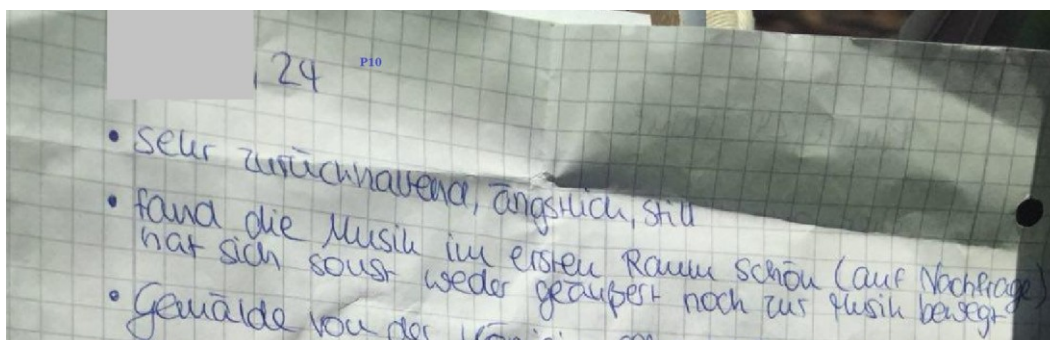 , 24 P10
• sehr zurückhaltend, ängstlich, still
• fand die Musik im ersten Raum schön (auf Nachfrage)
hat sich sonst weder geäußert noch zur Musik bewegt
• Gemälde von der